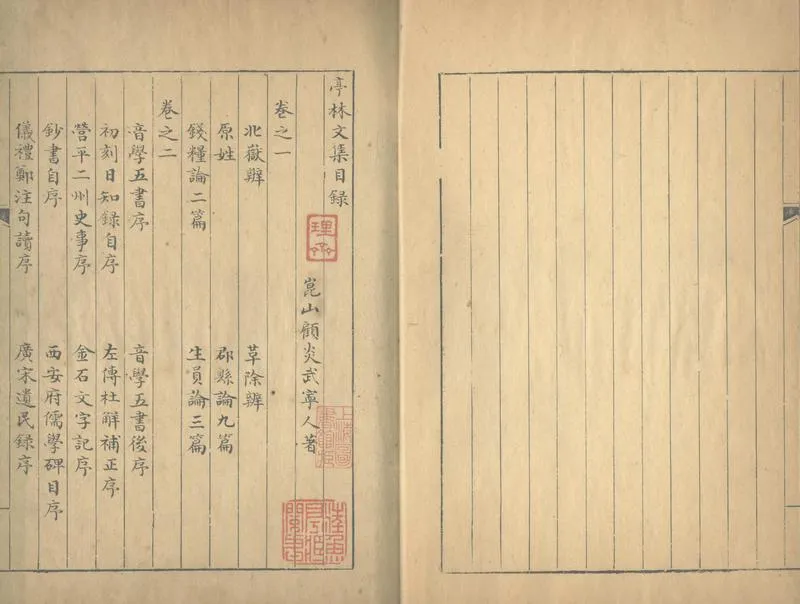 亭林文集目録
崑山顧炎武寧人著
卷之一
北嶽辨 草除辨
原姓 郡縣論九篇
錢糧論二篇 生員論三篇
卷之二
音學五書序 音學五書後序
初刻日知録自序 左傳杜解補正序
營平二州史事序 金石文字記序
鈔書自序 西安府儒學碑目序
儀禮鄭注句讀序 廣宋遺民録序